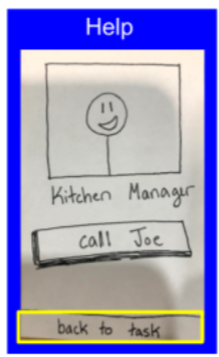 Help
Kitchen Manager
call Joe
back to task